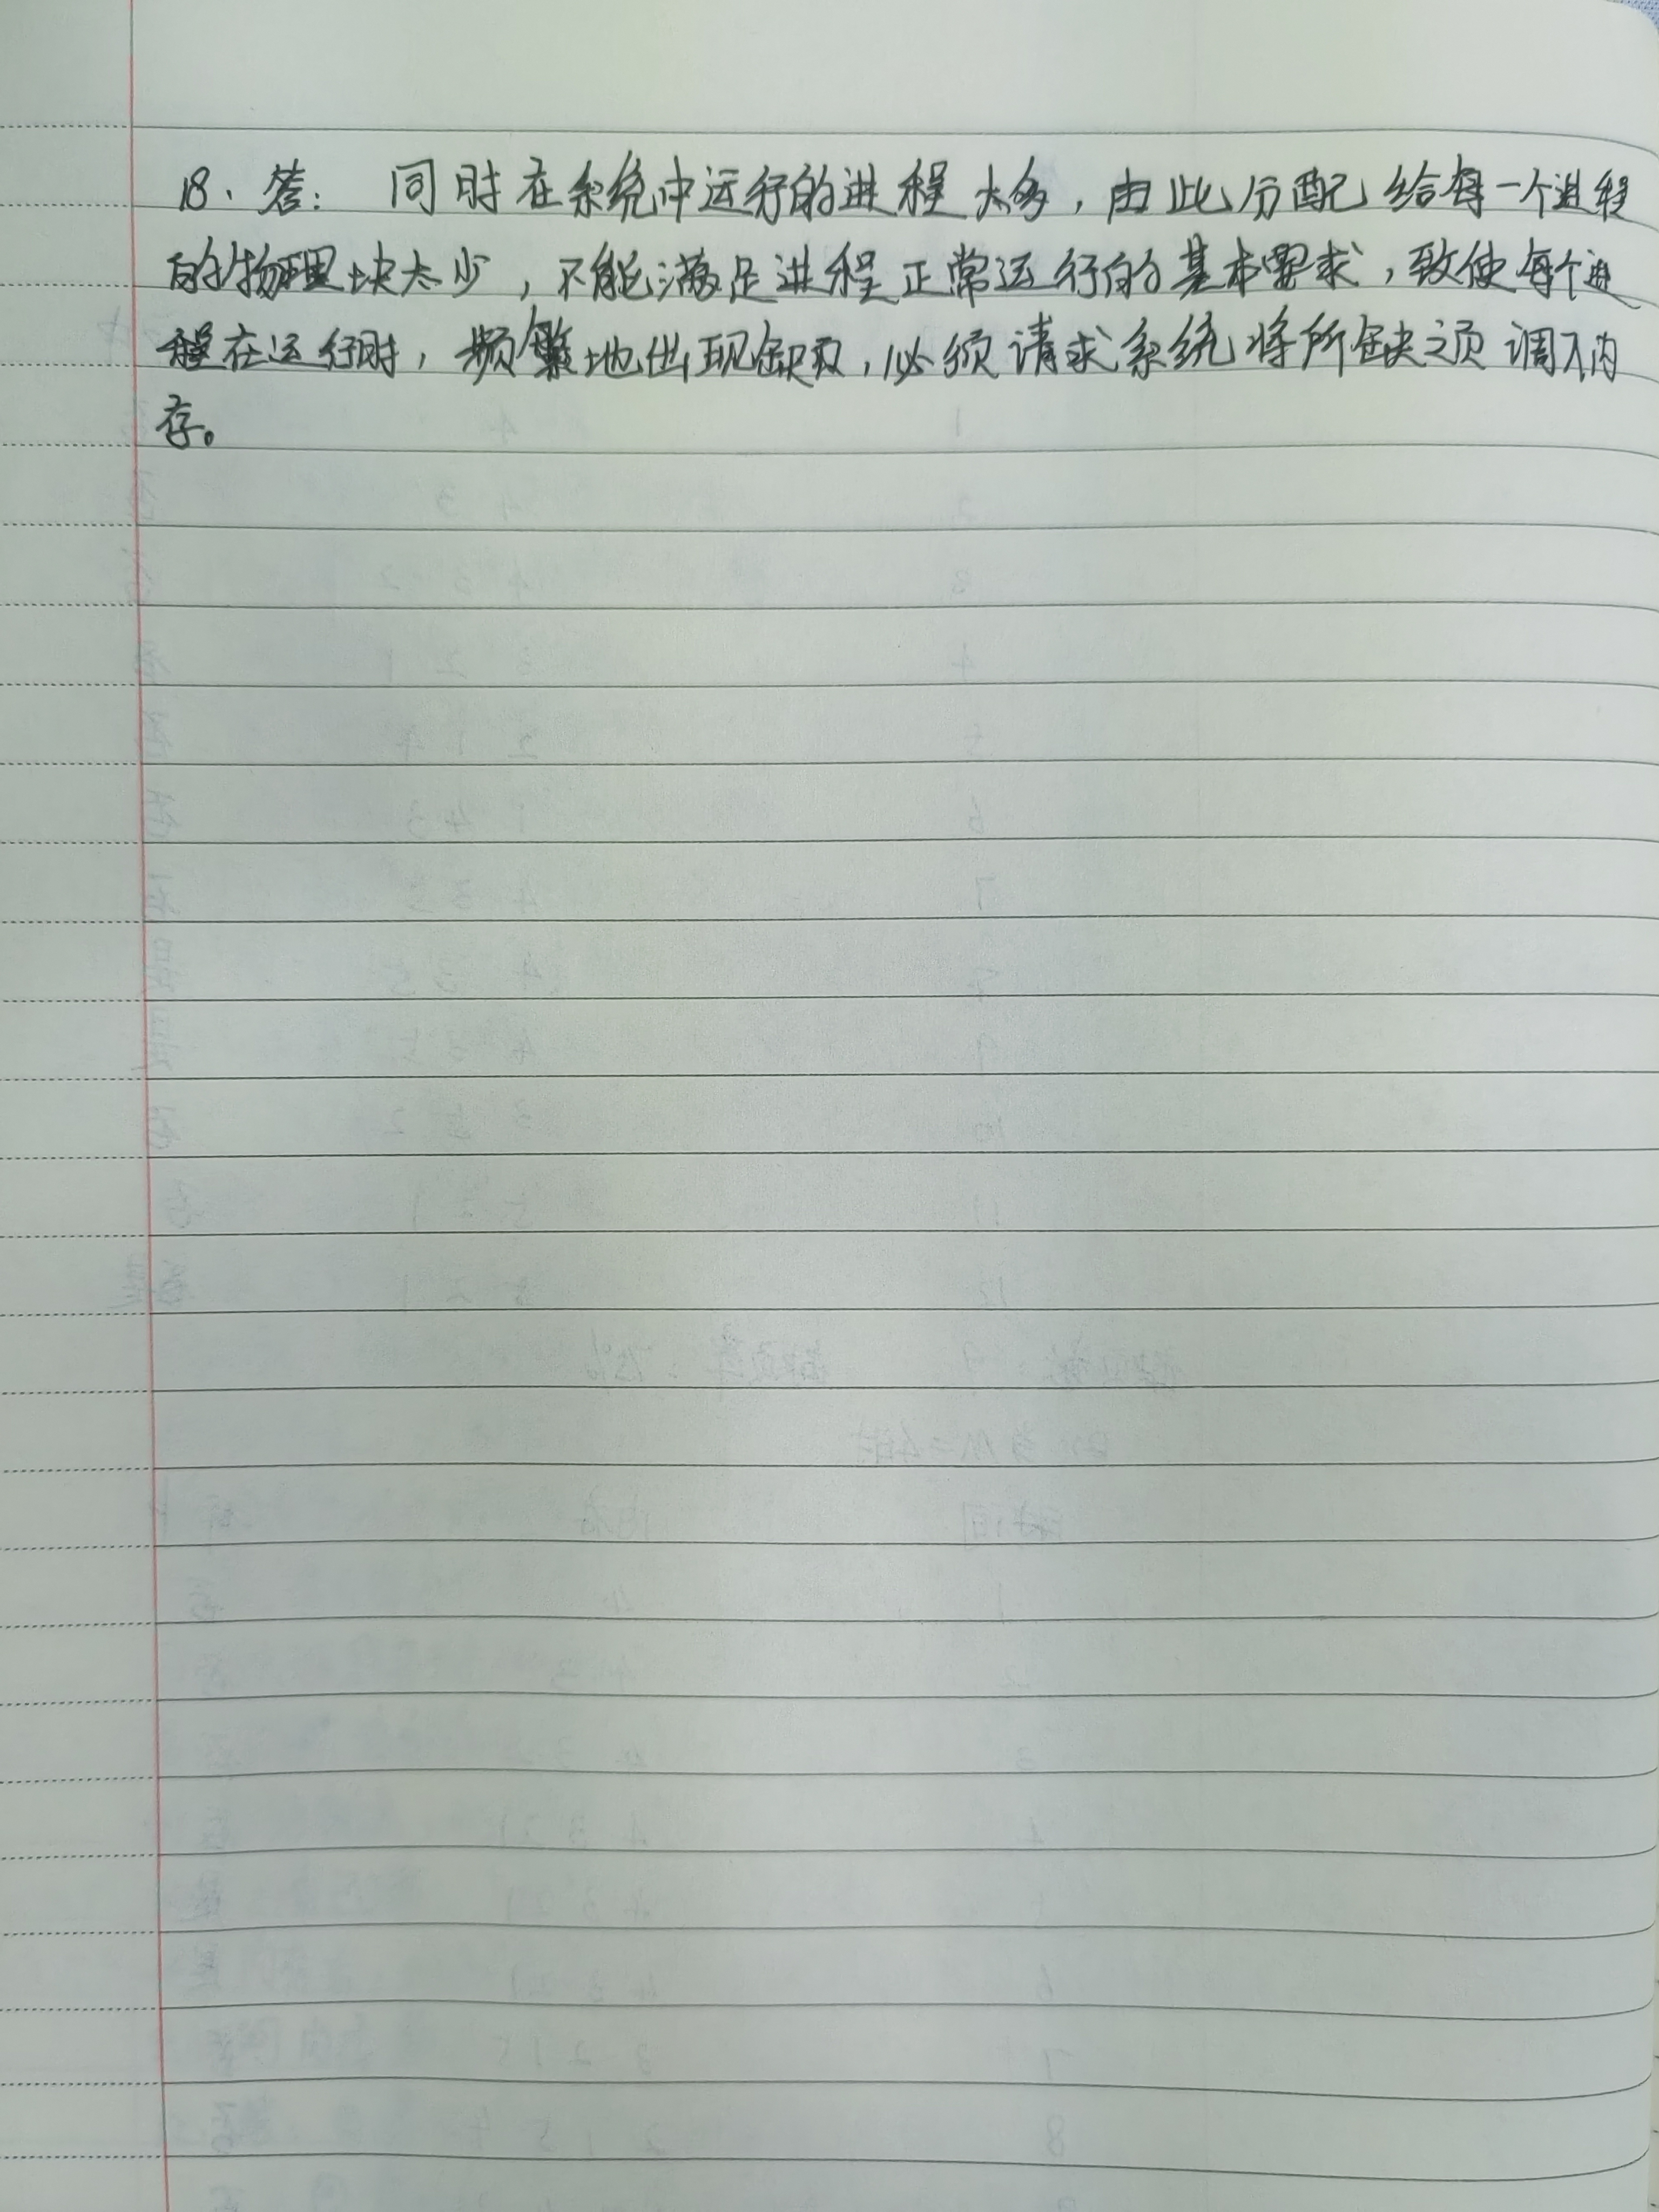 18、答: 同时在系统中运行的进程太多,由此分配给每一个进程
的物理块太少,不能满足进程正常运行的基本要求,致使每个进
程在运行时,频繁地出现缺页,必须请求系统将所缺之页调入内
存。